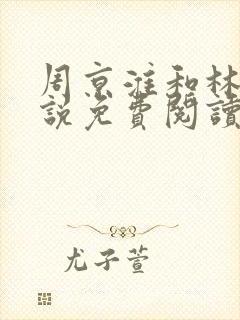 周京淮和林
說免費閱讀
尤子萱